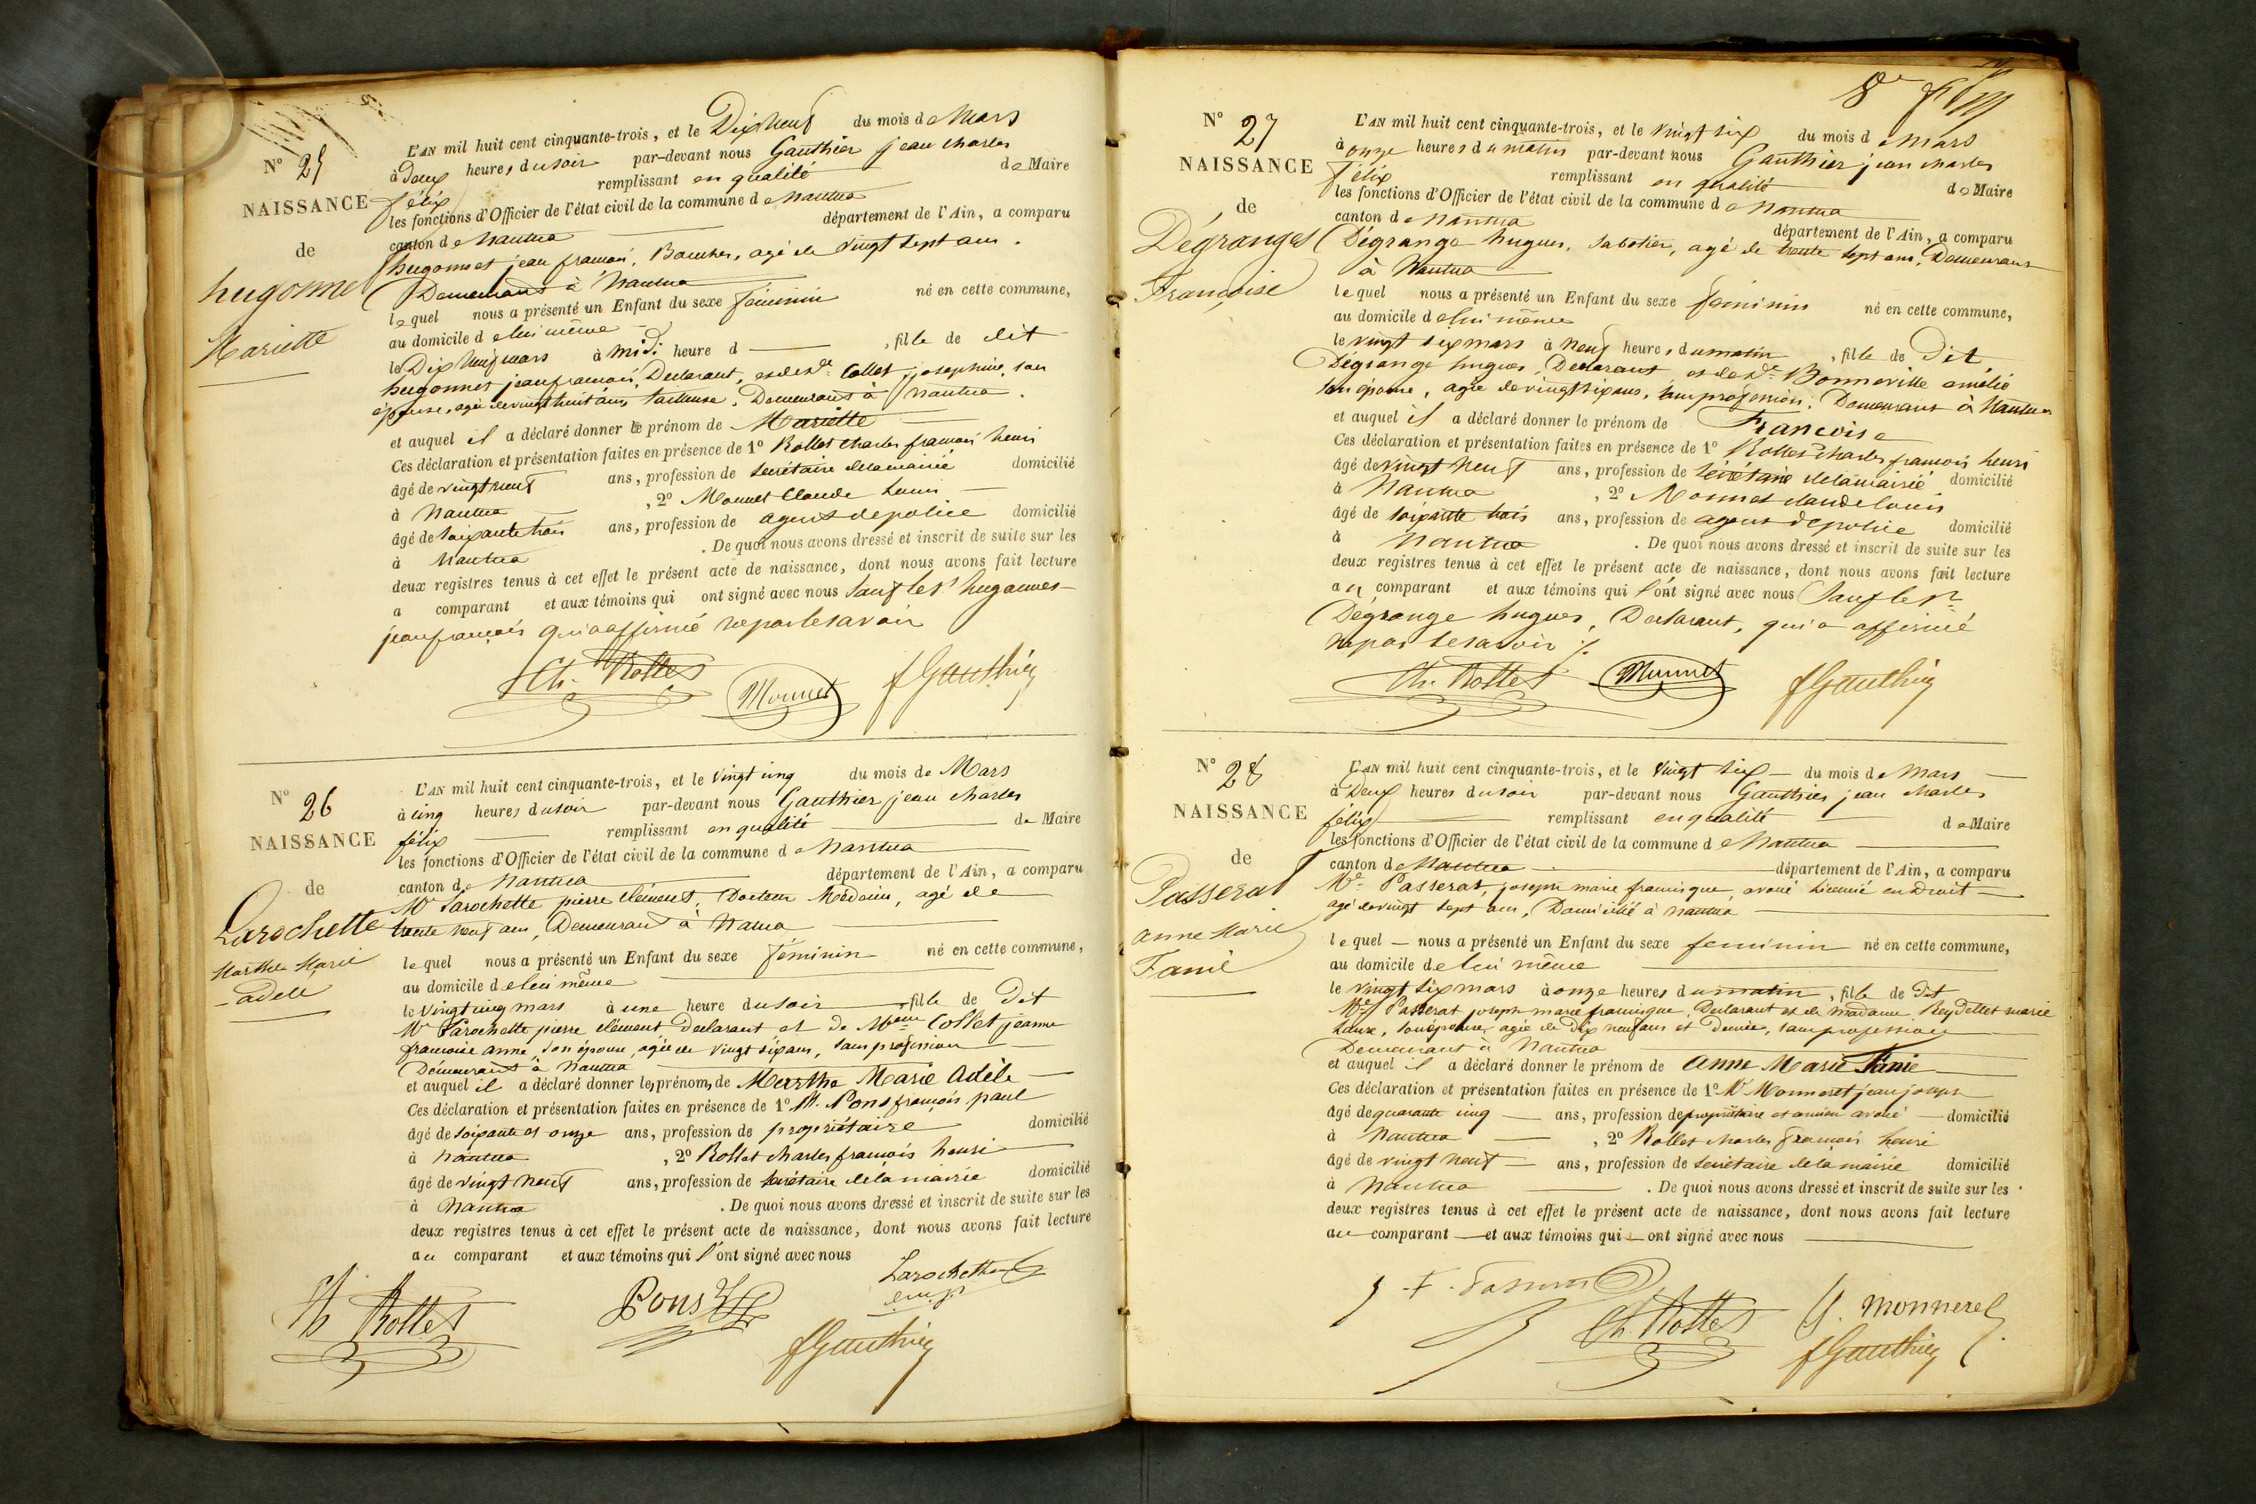 N° 25
NAISSANCE
de
hugonnet
Mariette
L'AN mil huit cent cinquante-trois, et le Dix Neuf du mois de Mars
à Deux heures du soir par-devant nous Gauthier jean charles
félix remplissant en qualité de Maire
les fonctions d'Officier de l'état civil de la commune de Nantua
canton de Nantua département de l'Ain, a comparu
hugonnet jean francois, agé de vingt sept ans.
Demeurant à Nantua
lequel nous a présenté un Enfant du sexe féminin né en cette commune,
au domicile de lui même
le Dix Neuf mars à midi heure d , fille de dit
hugonnet jean francois, Declarant, et de de Collet josephine, son
épouse, agée de vingt huit ans, tailleuse, Demeurant à Nantua.
et auquel il a déclaré donner le prénom de Mariette
Ces déclaration et présentation faites en présence de 1° Rollet charles francois henri
âgé de vingt neuf ans, profession de secrétaire de la mairie domicilié
à Nantua , 2° Monnet Claude Louis
âgé de soixante trois ans, profession de agent de police domicilié
à Nantua . De quoi nous avons dressé et inscrit de suite sur les
deux registres tenus à cet effet le présent acte de naissance, dont nous avons fait lecture
a comparant et aux témoins qui ont signé avec nous sauf le Sr hugonnet
jean françois qui a affirmé ne pas le savoir
Ch. Rollet Monnet f Gauthier
N° 26
NAISSANCE
de
Larochette
Marthe Marie
adèle
L'AN mil huit cent cinquante-trois, et le vingt cinq du mois de Mars
à cinq heures du soir par-devant nous Gauthier jean charles
félix remplissant en qualité de Maire
les fonctions d'Officier de l'état civil de la commune de Nantua
canton de Nantua département de l'Ain, a comparu
Mr Larochette pierre clément, Docteur Médecin, agé de
trente neuf ans, Demeurant à Nantua
lequel nous a présenté un Enfant du sexe féminin né en cette commune,
au domicile de lui même
le vingt cinq mars à une heure du soir fille de Dit
Mr Larochette pierre clément declarant et de Mame Collet jeanne
francoise anne, son épouse, agée de vingt six ans, sans profession
Demeurant à Nantua
et auquel il a déclaré donner les prénoms de Marthe Marie Adèle
Ces déclaration et présentation faites en présence de 1° M. Pons françois paul
âgé de soixante et onze ans, profession de propriétaire domicilié
à Nantua , 2° Rollet charles francois henri
âgé de vingt neuf ans, profession de secrétaire de la mairie domicilié
à Nantua . De quoi nous avons dressé et inscrit de suite sur les
deux registres tenus à cet effet le présent acte de naissance, dont nous avons fait lecture
au comparant et aux témoins qui l'ont signé avec nous
Larochette
Ch Rollet Pons
f Gauthier
N° 27
NAISSANCE
de
Dégrange
Françoise
L'AN mil huit cent cinquante-trois, et le vingt six du mois de Mars
à onze heures du matin par-devant nous Gauthier jean charles
félix remplissant en qualité de Maire
les fonctions d'Officier de l'état civil de la commune de Nantua
canton de Nantua département de l'Ain, a comparu
Dégrange hugues, sabotier, agé de trente sept ans, Demeurant
à Nantua
lequel nous a présenté un Enfant du sexe féminin né en cette commune,
au domicile de lui même
le vingt six mars à neuf heures du matin , fille de Dit
Dégrange hugues, Declarant et de de Bonneville amélie
son épouse, agée de vingt six ans, sans profession, Demeurant à Nantua
et auquel il a déclaré donner le prénom de Francoise
Ces déclaration et présentation faites en présence de 1° Rollet charles francois henri
âgé de vingt neuf ans, profession de secrétaire de la mairie domicilié
à Nantua , 2° Monnet claude louis
âgé de soixante trois ans, profession de agent de police domicilié
à Nantua . De quoi nous avons dressé et inscrit de suite sur les
deux registres tenus à cet effet le présent acte de naissance, dont nous avons fait lecture
au comparant et aux témoins qui l'ont signé avec nous sauf le Sr
Dégrange hugues, Declarant, qui a affirmé
ne pas le savoir
Ch. Rollet Monnet f Gauthier
N° 28
NAISSANCE
de
Passerat
anne Marie
Fanie
L'AN mil huit cent cinquante-trois, et le vingt six du mois de Mars
à Deux heures du soir par-devant nous Gauthier jean charles
félix remplissant en qualité de Maire
les fonctions d'Officier de l'état civil de la commune de Nantua
canton de Nantua département de l'Ain, a comparu
Me Passerat, joseph marie francisque, avoué Licencié en Droit
agé de vingt sept ans, Domicilié à Nantua
lequel nous a présenté un Enfant du sexe feminin né en cette commune,
au domicile de lui même
le vingt six mars à onze heures du matin, fille de Dit
Me Passerat joseph marie francisque, Declarant et de madame Reydellet marie
son épouse, agée de dix neuf ans et Demie, sans profession
Demeurant à Nantua
et auquel il a déclaré donner le prénom de Anne Marie Fanie
Ces déclaration et présentation faites en présence de 1° Mr Monneret jean joseph
âgé de quarante cinq ans, profession de propriétaire et ancien avoué domicilié
à Nantua , 2° Rollet charles francois henri
âgé de vingt neuf ans, profession de secrétaire de la mairie domicilié
à Nantua . De quoi nous avons dressé et inscrit de suite sur les
deux registres tenus à cet effet le présent acte de naissance, dont nous avons fait lecture
au comparant et aux témoins qui ont signé avec nous
Ch. Rollet J. Monneret
f Gauthier